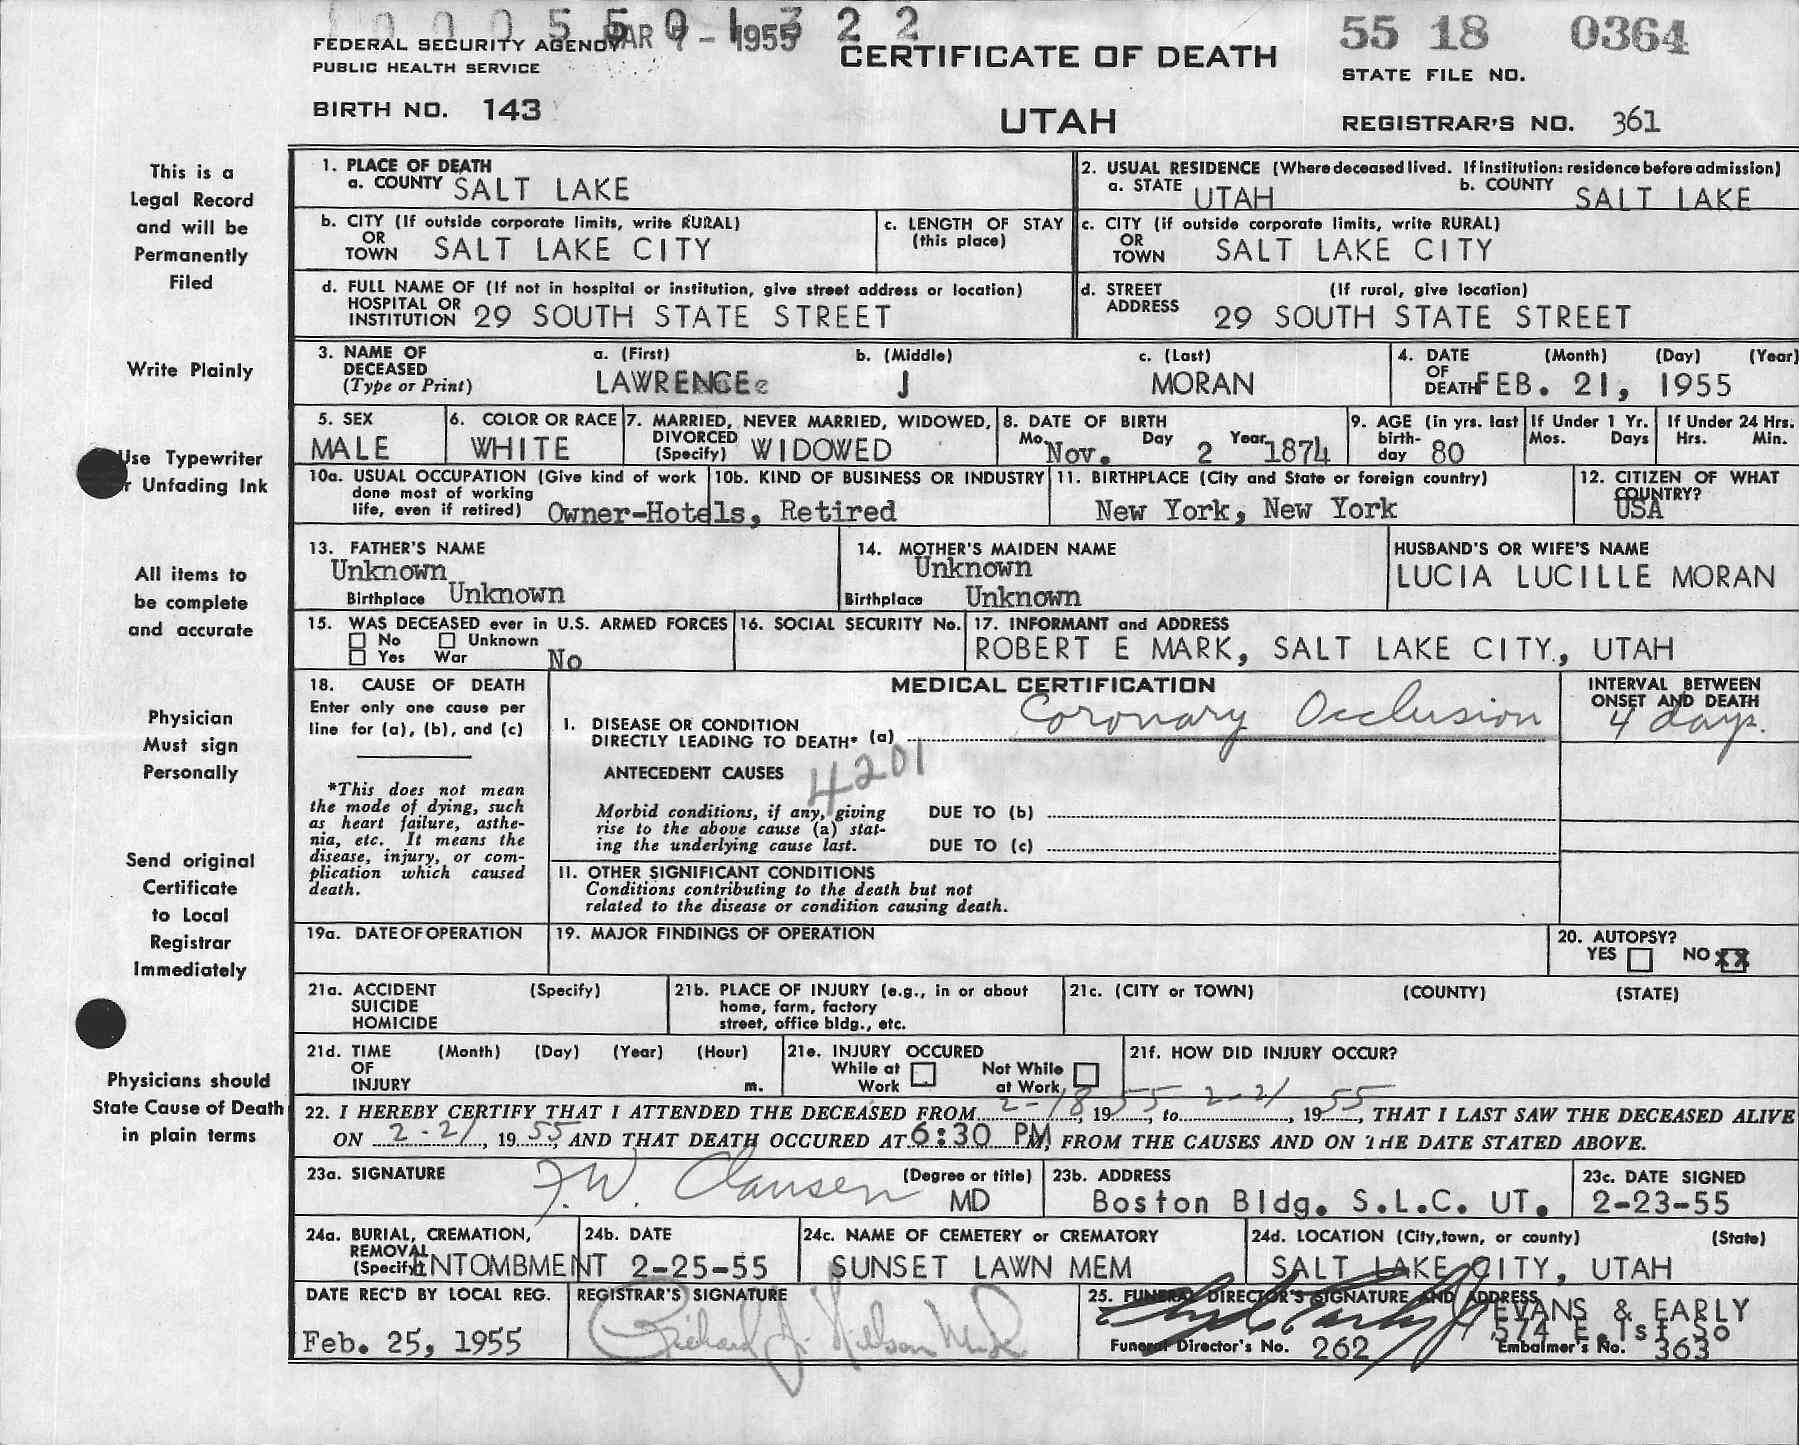 10005501322
MAR 7 - 1955
55 18 0364
FEDERAL SECURITY AGENCY
PUBLIC HEALTH SERVICE
CERTIFICATE OF DEATH
STATE FILE NO.
BIRTH NO. 143
UTAH
REGISTRAR'S NO. 361
This is a
Legal Record
and will be
Permanently
Filed
Write Plainly
Use Typewriter
r Unfading Ink
All items to
be complete
and accurate
Physician
Must sign
Personally
Send original
Certificate
to Local
Registrar
Immediately
Physicians should
State Cause of Death
in plain terms
1. PLACE OF DEATH
a. COUNTY SALT LAKE
2. USUAL RESIDENCE (Where deceased lived. If institution: residence before admission)
a. STATE UTAH b. COUNTY SALT LAKE
b. CITY (If outside corporate limits, write RURAL)
OR
TOWN SALT LAKE CITY
c. LENGTH OF STAY
(this place)
c. CITY (if outside corporate limits, write RURAL)
OR
TOWN SALT LAKE CITY
d. FULL NAME OF (If not in hospital or institution, give street address or location)
HOSPITAL OR
INSTITUTION 29 SOUTH STATE STREET
d. STREET (If rural, give location)
ADDRESS 29 SOUTH STATE STREET
3. NAME OF
DECEASED
(Type or Print)
a. (First) b. (Middle) c. (Last)
LAWRENCE J MORAN
4. DATE (Month) (Day) (Year)
OF
DEATH FEB. 21, 1955
5. SEX
MALE
6. COLOR OR RACE
WHITE
7. MARRIED, NEVER MARRIED, WIDOWED,
DIVORCED
(Specify) WIDOWED
8. DATE OF BIRTH
Mo. Nov. Day 2 Year 1874
9. AGE (in yrs. last
birth-
day 80
If Under 1 Yr.
Mos. Days
If Under 24 Hrs.
Hrs. Min.
10a. USUAL OCCUPATION (Give kind of work
done most of working
life, even if retired) Owner-Hotels, Retired
10b. KIND OF BUSINESS OR INDUSTRY
11. BIRTHPLACE (City and State or foreign country)
New York, New York
12. CITIZEN OF WHAT
COUNTRY?
USA
13. FATHER'S NAME
Unknown
Birthplace Unknown
14. MOTHER'S MAIDEN NAME
Unknown
Birthplace Unknown
HUSBAND'S OR WIFE'S NAME
LUCIA LUCILLE MORAN
15. WAS DECEASED ever in U.S. ARMED FORCES
No Unknown
Yes War No
16. SOCIAL SECURITY No.
17. INFORMANT and ADDRESS
ROBERT E MARK, SALT LAKE CITY, UTAH
18. CAUSE OF DEATH
Enter only one cause per
line for (a), (b), and (c)
*This does not mean
the mode of dying, such
as heart failure, asthe-
nia, etc. It means the
disease, injury, or com-
plication which caused
death.
MEDICAL CERTIFICATION
I. DISEASE OR CONDITION
DIRECTLY LEADING TO DEATH* (a) Coronary Occlusion
INTERVAL BETWEEN
ONSET AND DEATH
4 days.
ANTECEDENT CAUSES 4201
Morbid conditions, if any, giving
rise to the above cause (a) stat-
ing the underlying cause last.
DUE TO (b)
DUE TO (c)
II. OTHER SIGNIFICANT CONDITIONS
Conditions contributing to the death but not
related to the disease or condition causing death.
19a. DATE OF OPERATION
19. MAJOR FINDINGS OF OPERATION
20. AUTOPSY?
YES NO XX
21a. ACCIDENT (Specify)
SUICIDE
HOMICIDE
21b. PLACE OF INJURY (e.g., in or about
home, farm, factory
street, office bldg., etc.
21c. (CITY or TOWN) (COUNTY) (STATE)
21d. TIME (Month) (Day) (Year) (Hour)
OF
INJURY m.
21e. INJURY OCCURED
While at Work Not While at Work
21f. HOW DID INJURY OCCUR?
22. I HEREBY CERTIFY THAT I ATTENDED THE DECEASED FROM 2-18, 1955, to 2-21, 1955, THAT I LAST SAW THE DECEASED ALIVE
ON 2-21, 1955, AND THAT DEATH OCCURED AT 6:30 PM, FROM THE CAUSES AND ON THE DATE STATED ABOVE.
23a. SIGNATURE F.W. Clausen (Degree or title) MD
23b. ADDRESS
Boston Bldg. S.L.C. UT.
23c. DATE SIGNED
2-23-55
24a. BURIAL, CREMATION,
REMOVAL
(Specify) ENTOMBMENT
24b. DATE
2-25-55
24c. NAME OF CEMETERY or CREMATORY
SUNSET LAWN MEM
24d. LOCATION (City, town, or county) (State)
SALT LAKE CITY, UTAH
DATE REC'D BY LOCAL REG.
Feb. 25, 1955
REGISTRAR'S SIGNATURE
25. FUNERAL DIRECTOR'S SIGNATURE AND ADDRESS
EVANS & EARLY
574 E. 1st So
Funeral Director's No. 262 Embalmer's No. 363